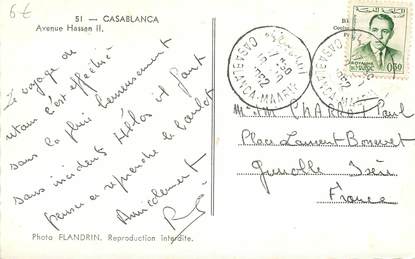 6€
51 — CASABLANCA
Avenue Hassan II.
Le voyage au
retour s'est effectué
sans la plus heureusement
sans incidents Hélas il faut
penser à reprendre le boulot
Amicalement
Photo FLANDRIN. Reproduction interdite.
CASABLANCA-MAARIF
1962
CASABLANCA-MAARIF
1962
ROYAUME
DU MAROC
0,30
M. Mme CHARROT Paul
Place Laurent Bonnevet
Grenoble Isère
France